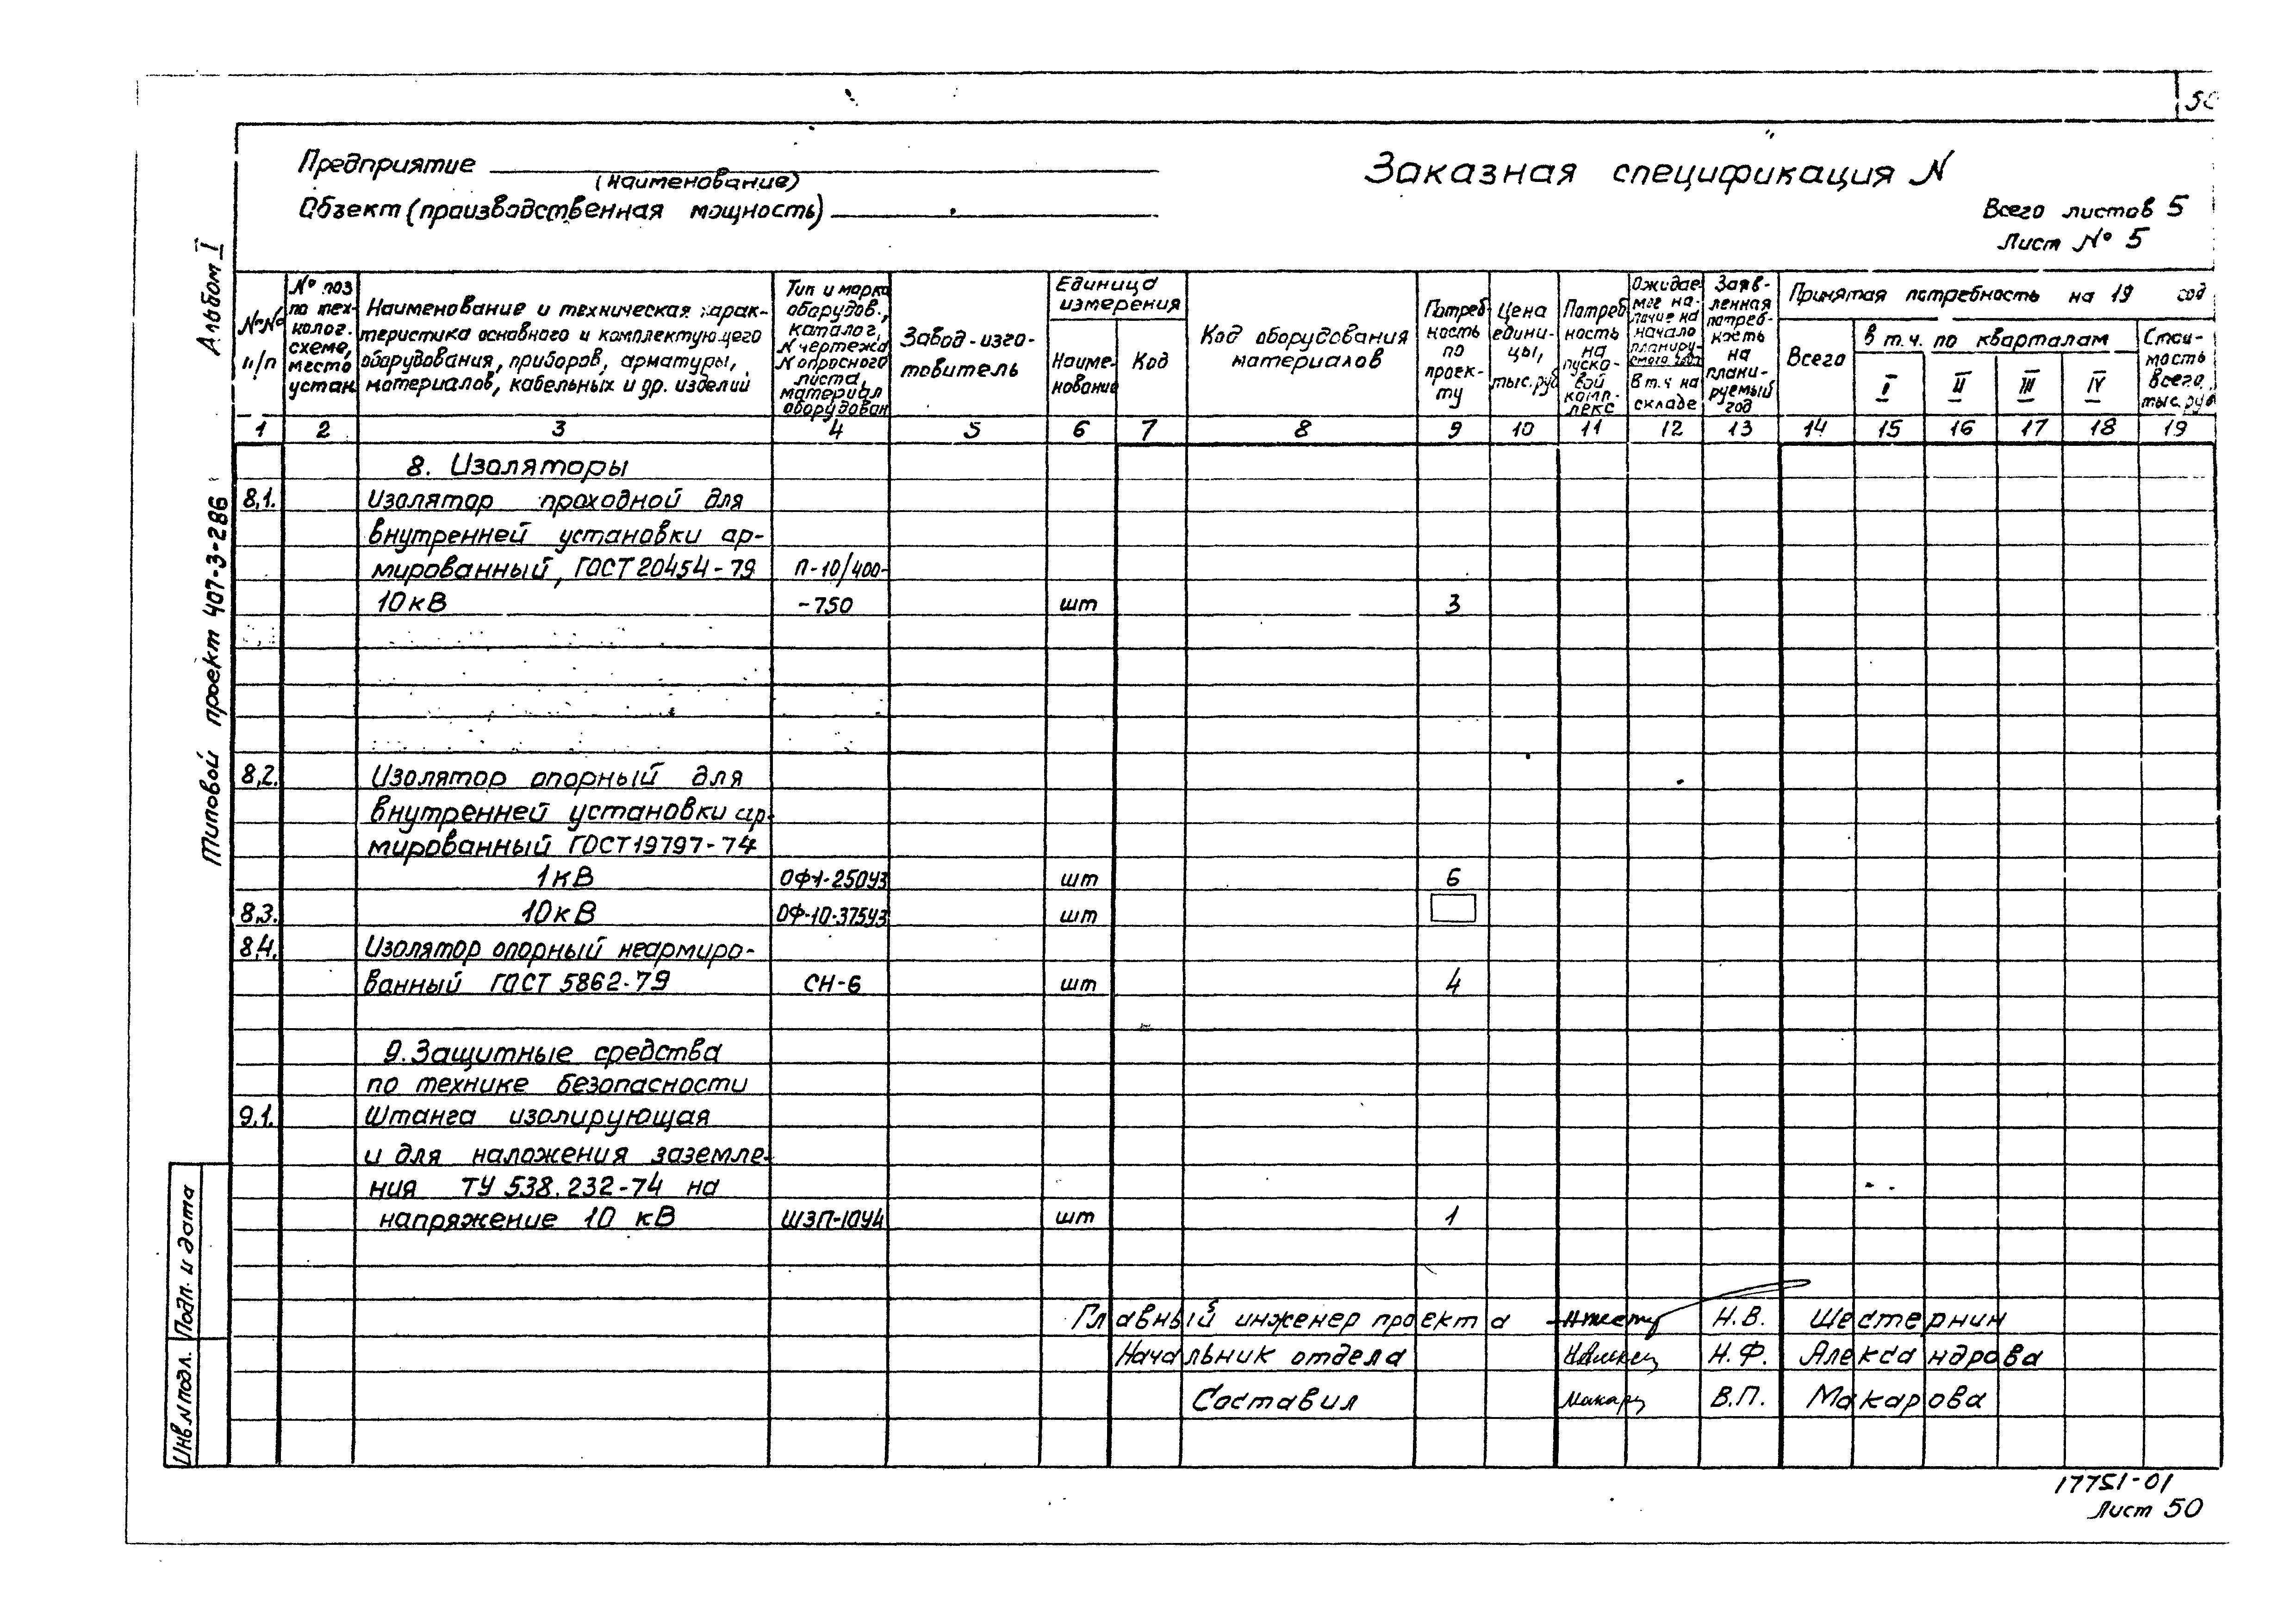 Альбом I
Типовой проект 407-3-286
Подп. и дата
Инв.N подл.
Предприятие
(наименование)
Объект (производственная мощность)
Заказная спецификация N
Всего листов 5
Лист № 5
№№ п/п
№ поз по технолог. схеме, место устан.
Наименование и техническая характеристика основного и комплектующего оборудования, приборов, арматуры, материалов, кабельных и др. изделий
Тип и марка оборудов., каталог, N чертежа N опросного листа, материал оборудован
Завод-изготовитель
Единица измерения
Наименование
Код
Код оборудования материалов
Потребность по проекту
Цена единицы, тыс.руб
Потребность на пусковой комплекс
Ожидаемое наличие на начало планируемого года
В т.ч на складе
Заявленная потребность на планируемый год
Принятая потребность на 19 год
Всего
в т.ч. по кварталам
I II III IV
Стоимость всего, тыс. руб
1 2 3 4 5 6 7 8 9 10 11 12 13 14 15 16 17 18 19
8. Изоляторы
8,1. Изолятор проходной для
внутренней установки ар-
мированный, ГОСТ 20454-79 П-10/400-
10 кВ -750 шт 3
8,2. Изолятор опорный для
внутренней установки ар-
мированный ГОСТ 19797-74
1 кВ ОФ-1-250У3 шт 6
8,3. 10 кВ ОФ-10-375У3 шт
8,4. Изолятор опорный неармиро-
ванный ГОСТ 5862-79 СН-6 шт 4
9. Защитные средства
по технике безопасности
9.1. Штанга изолирующая
и для наложения заземле-
ния ТУ 538.232-74 на
напряжение 10 кВ ШЗП-10У4 шт 1
Главный инженер проекта Н.В. Шестернин
Начальник отдела Н.Ф. Александрова
Составил В.П. Макарова
17751-01
Лист 50